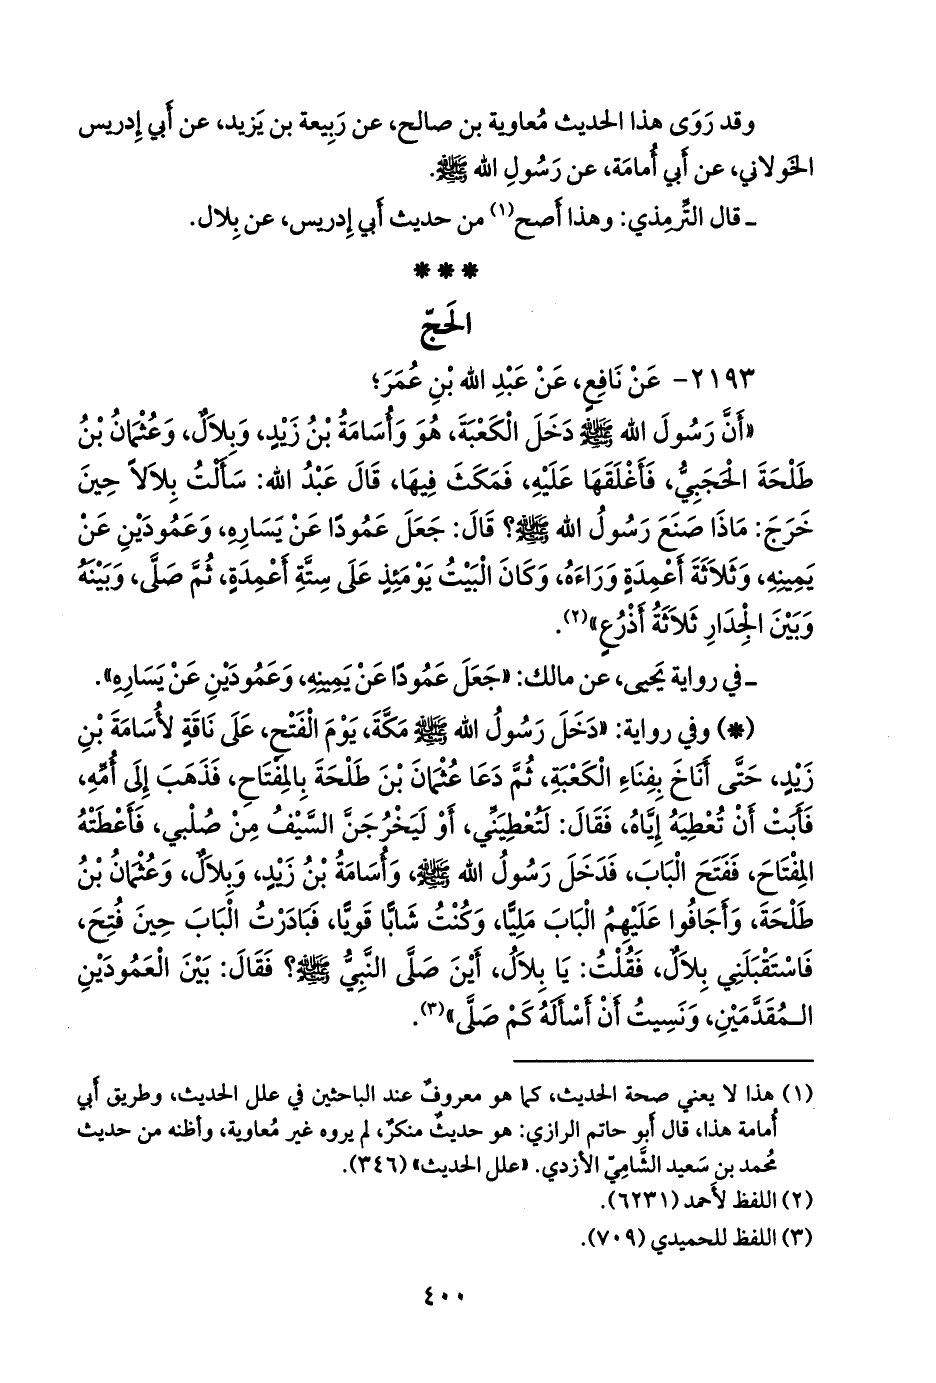 وقد رَوَى هذا الحديث مُعاوية بن صالح، عن رَبِيعة بن يَزيد، عن أَبي إِدريس
الخَولاني، عن أَبي أُمامَة، عن رَسُولِ الله ﷺ.
ـ قال التِّرمِذي: وهذا أَصح(١) من حديث أَبي إِدريس، عن بِلال.
***
الحَجّ
٢١٩٣- عَنْ نَافِعٍ، عَنْ عَبْدِ الله بْنِ عُمَرَ؛
«أَنَّ رَسُولَ الله ﷺ دَخَلَ الْكَعْبَةَ، هُوَ وَأُسَامَةُ بْنُ زَيْدٍ، وَبِلاَلٌ، وَعُثْمَانُ بْنُ
طَلْحَةَ الْحَجَبِيُّ، فَأَغْلَقَهَا عَلَيْهِ، فَمَكَثَ فِيهَا، قَالَ عَبْدُ الله: سَأَلْتُ بِلاَلاً حِينَ
خَرَجَ: مَاذَا صَنَعَ رَسُولُ الله ﷺ؟ قَالَ: جَعَلَ عَمُودًا عَنْ يَسَارِهِ، وَعَمُودَيْنِ عَنْ
يَمِينِهِ، وَثَلاَثَةَ أَعْمِدَةٍ وَرَاءَهُ، وَكَانَ الْبَيْتُ يَوْمَئِذٍ عَلَى سِتَّةِ أَعْمِدَةٍ، ثُمَّ صَلَّى، وَبَيْنَهُ
وَبَيْنَ الْجِدَارِ ثَلاَثَةُ أَذْرُعٍ»(٢).
ـ في رواية يَحيى، عن مالك: «جَعَلَ عَمُودًا عَنْ يَمِينِهِ، وَعَمُودَيْنِ عَنْ يَسَارِهِ».
(*) وفي رواية: «دَخَلَ رَسُولُ الله ﷺ مَكَّةَ، يَوْمَ الْفَتْحِ، عَلَى نَاقَةٍ لأُسَامَةَ بْنِ
زَيْدٍ، حَتَّى أَنَاخَ بِفِنَاءِ الْكَعْبَةِ، ثُمَّ دَعَا عُثْمَانَ بْنَ طَلْحَةَ بِالْمِفْتَاحِ، فَذَهَبَ إِلَى أُمِّهِ،
فَأَبَتْ أَنْ تُعْطِيَهُ إِيَّاهُ، فَقَالَ: لَتُعْطِيَنِّي، أَوْ لَيَخْرُجَنَّ السَّيْفُ مِنْ صُلْبي، فَأَعْطَتْهُ
الْمِفْتَاحَ، فَفَتَحَ الْبَابَ، فَدَخَلَ رَسُولُ الله ﷺ، وَأُسَامَةُ بْنُ زَيْدٍ، وَبِلاَلٌ، وَعُثْمَانُ بْنُ
طَلْحَةَ، وَأَجَافُوا عَلَيْهِمُ الْبَابَ مَلِيًّا، وَكُنْتُ شَابًّا قَوِيًّا، فَبَادَرْتُ الْبَابَ حِينَ فُتِحَ،
فَاسْتَقْبَلَنِي بِلاَلٌ، فَقُلْتُ: يَا بِلاَلُ، أَيْنَ صَلَّى النَّبِيُّ ﷺ؟ فَقَالَ: بَيْنَ الْعَمُودَيْنِ
الـمُقَدَّمَيْنِ، وَنَسِيتُ أَنْ أَسْأَلَهُ كَمْ صَلَّى»(٣).
(١) هذا لا يعني صحة الحديث، كما هو معروفٌ عند الباحثين في علل الحديث، وطريق أَبي
أُمامة هذا، قال أَبو حاتم الرازي: هو حديثٌ منكرٌ، لم يروه غير مُعاوية، وأظنه من حديث
مُحمد بن سَعيد الشَّامِيّ الأزدي. «علل الحديث» (٣٤٦).
(٢) اللفظ لأَحمد (٦٢٣١).
(٣) اللفظ للحميدي (٧٠٩).
٤٠٠